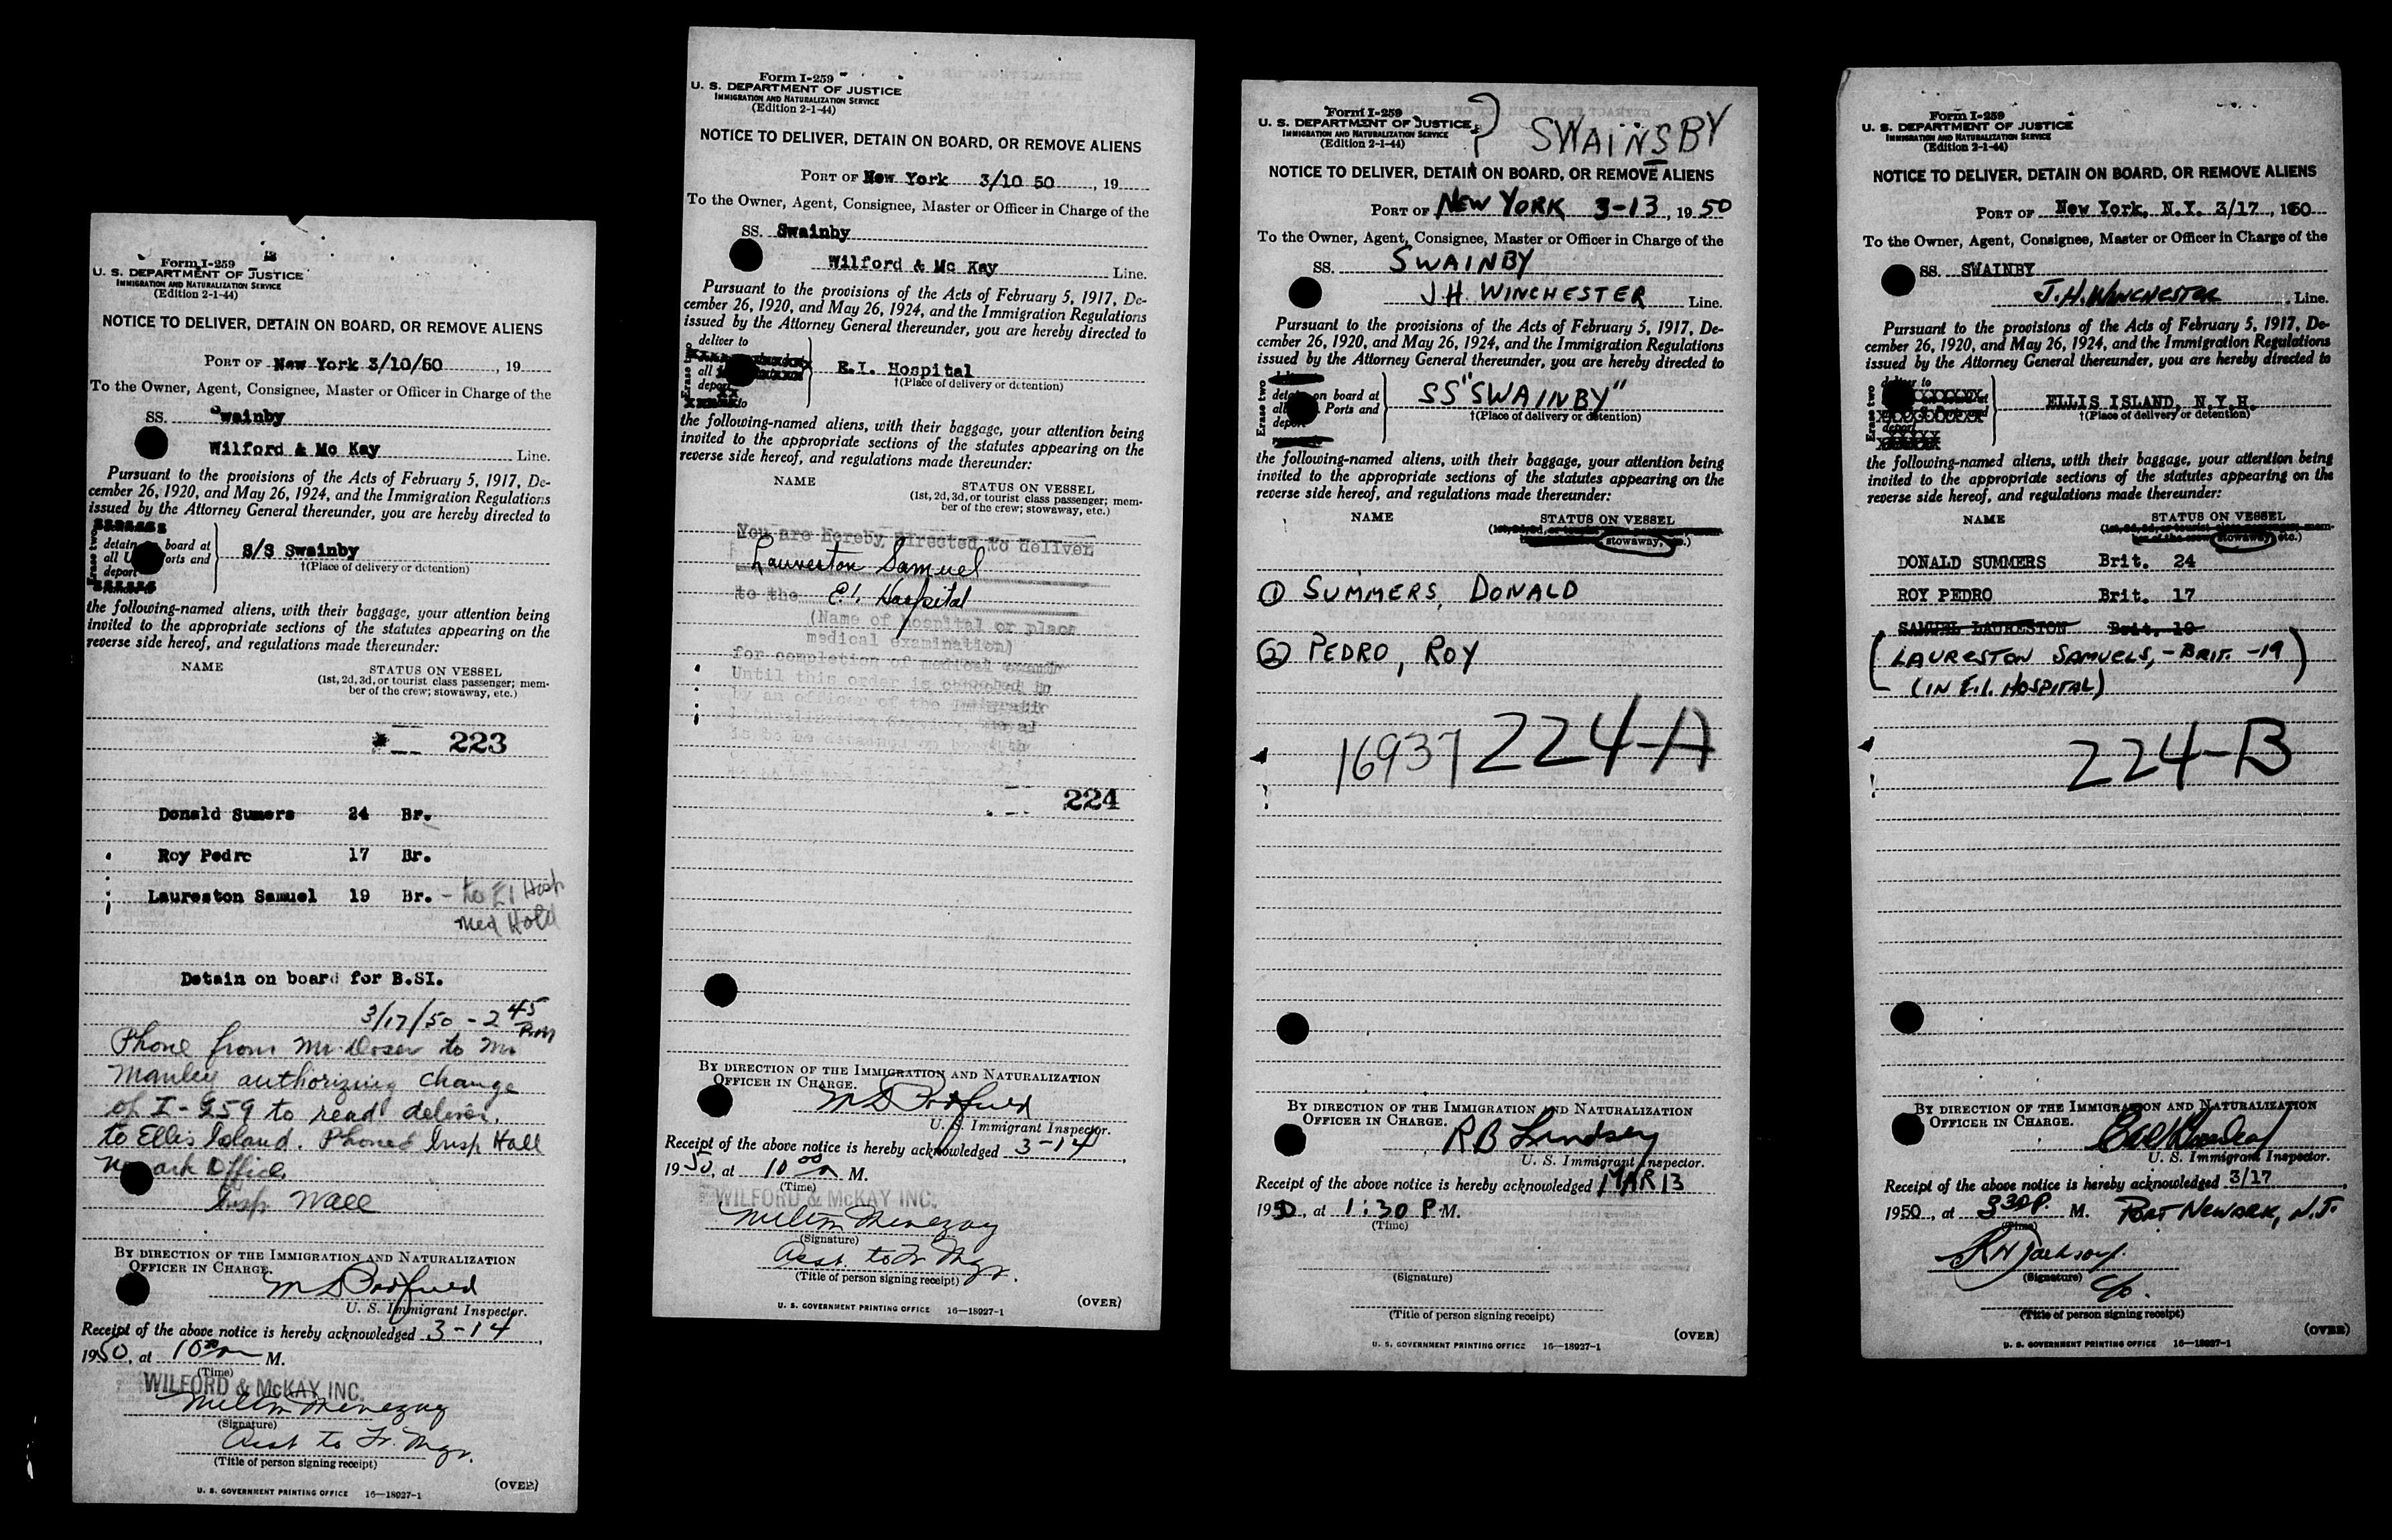 Form I-259
U. S. DEPARTMENT OF JUSTICE
IMMIGRATION AND NATURALIZATION SERVICE
(Edition 2-1-44)
NOTICE TO DELIVER, DETAIN ON BOARD, OR REMOVE ALIENS
PORT OF New York 3/10/50, 19
To the Owner, Agent, Consignee, Master or Officer in Charge of the
SS. Swainby
Wilford & Mc Kay Line.
Pursuant to the provisions of the Acts of February 5, 1917, De-
cember 26, 1920, and May 26, 1924, and the Immigration Regulations
issued by the Attorney General thereunder, you are hereby directed to
Erase two
detain board at
all U orts and
deport
S/S Swainby
†(Place of delivery or detention)
the following-named aliens, with their baggage, your attention being
invited to the appropriate sections of the statutes appearing on the
reverse side hereof, and regulations made thereunder:
NAME STATUS ON VESSEL
(1st, 2d, 3d, or tourist class passenger; mem-
ber of the crew; stowaway, etc.)
223
Donald Sumers 24 Br.
Roy Pedro 17 Br.
Laureston Samuel 19 Br. - to EI Hosp
Med Hold
Detain on board for B.SI.
3/17/50 - 2 45 P.M
Phone from Mr. Doser to Mr
Manley authorizing change
of I-259 to read deliver
to Ellis Island. Phoned Insp Hall
Newark Office.
Insp. Wall
BY DIRECTION OF THE IMMIGRATION AND NATURALIZATION
OFFICER IN CHARGE.
U. S. Immigrant Inspector.
Receipt of the above notice is hereby acknowledged 3-14,
1950, at 10 M.
(Time)
WILFORD & McKAY INC.
(Signature)
Asst to Fr. Mgr.
(Title of person signing receipt)
(OVER)
U. S. GOVERNMENT PRINTING OFFICE 16—18927-1
Form I-259
U. S. DEPARTMENT OF JUSTICE
IMMIGRATION AND NATURALIZATION SERVICE
(Edition 2-1-44)
NOTICE TO DELIVER, DETAIN ON BOARD, OR REMOVE ALIENS
PORT OF New York 3/10 50, 19
To the Owner, Agent, Consignee, Master or Officer in Charge of the
SS. Swainby
Wilford & Mc Kay Line.
Pursuant to the provisions of the Acts of February 5, 1917, De-
cember 26, 1920, and May 26, 1924, and the Immigration Regulations
issued by the Attorney General thereunder, you are hereby directed to
Erase two
deliver to
all
deport
to
E.I. Hospital
†(Place of delivery or detention)
the following-named aliens, with their baggage, your attention being
invited to the appropriate sections of the statutes appearing on the
reverse side hereof, and regulations made thereunder:
NAME STATUS ON VESSEL
(1st, 2d, 3d, or tourist class passenger; mem-
ber of the crew; stowaway, etc.)
You are hereby directed to deliver
Laureston Samuel
to the E.I. Hospital
(Name of hospital or place
medical examination)
for completion of medical
Until this order is
by an officer of the
224
BY DIRECTION OF THE IMMIGRATION AND NATURALIZATION
OFFICER IN CHARGE.
U. S. Immigrant Inspector.
Receipt of the above notice is hereby acknowledged 3-14,
1950, at 10 00 M.
(Time)
WILFORD & McKAY INC.
(Signature)
Asst. to Fr. Mgr.
(Title of person signing receipt)
(OVER)
U. S. GOVERNMENT PRINTING OFFICE 16—18927-1
Form I-259
U. S. DEPARTMENT OF JUSTICE
IMMIGRATION AND NATURALIZATION SERVICE
(Edition 2-1-44)
? SWAINSBY
NOTICE TO DELIVER, DETAIN ON BOARD, OR REMOVE ALIENS
PORT OF NEW YORK 3-13, 1950
To the Owner, Agent, Consignee, Master or Officer in Charge of the
SS. SWAINBY
J.H. WINCHESTER Line.
Pursuant to the provisions of the Acts of February 5, 1917, De-
cember 26, 1920, and May 26, 1924, and the Immigration Regulations
issued by the Attorney General thereunder, you are hereby directed to
Erase two
detain on board at
all Ports and
deport
SS "SWAINBY"
†(Place of delivery or detention)
the following-named aliens, with their baggage, your attention being
invited to the appropriate sections of the statutes appearing on the
reverse side hereof, and regulations made thereunder:
NAME STATUS ON VESSEL
stowaway,
① SUMMERS, DONALD
② PEDRO, ROY
16937 224-A
BY DIRECTION OF THE IMMIGRATION AND NATURALIZATION
OFFICER IN CHARGE.
RB Lindsey
U. S. Immigrant Inspector.
Receipt of the above notice is hereby acknowledged MAR 13
1950, at 1:30 P.M.
(Time)
(Signature)
(Title of person signing receipt)
(OVER)
U. S. GOVERNMENT PRINTING OFFICE 16—18927-1
Form I-259
U. S. DEPARTMENT OF JUSTICE
IMMIGRATION AND NATURALIZATION SERVICE
(Edition 2-1-44)
NOTICE TO DELIVER, DETAIN ON BOARD, OR REMOVE ALIENS
PORT OF New York, N.Y. 3/17, 1950
To the Owner, Agent, Consignee, Master or Officer in Charge of the
SS. SWAINBY
J.H. WINCHESTER Line.
Pursuant to the provisions of the Acts of February 5, 1917, De-
cember 26, 1920, and May 26, 1924, and the Immigration Regulations
issued by the Attorney General thereunder, you are hereby directed to
Erase two
deliver to
deport
ELLIS ISLAND, N.Y.H.
†(Place of delivery or detention)
the following-named aliens, with their baggage, your attention being
invited to the appropriate sections of the statutes appearing on the
reverse side hereof, and regulations made thereunder:
NAME STATUS ON VESSEL
(1st, 2d, 3d, or tourist class passenger; mem-
ber of the crew; stowaway, etc.)
DONALD SUMMERS Brit. 24
ROY PEDRO Brit. 17
SAMUEL LAURESTON Brit. 19
(LAURESTON SAMUELS, - BRIT. - 19)
(IN E.I. HOSPITAL)
224-B
BY DIRECTION OF THE IMMIGRATION AND NATURALIZATION
OFFICER IN CHARGE.
U. S. Immigrant Inspector.
Receipt of the above notice is hereby acknowledged 3/17,
1950, at 3 30 P. M. PORT NEWARK, N.J.
(Time)
RH Jackson
(Signature)
C/O.
(Title of person signing receipt)
(OVER)
U. S. GOVERNMENT PRINTING OFFICE 16—18927-1